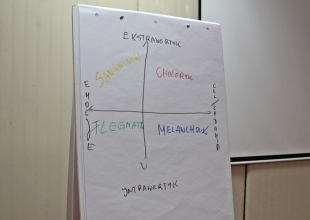 EKSTRAWERTYK
SANGWINIK
CHOLERYK
EMOCJE
FLEGMATYK
MELANCHOLIK
INTRAWERTYK